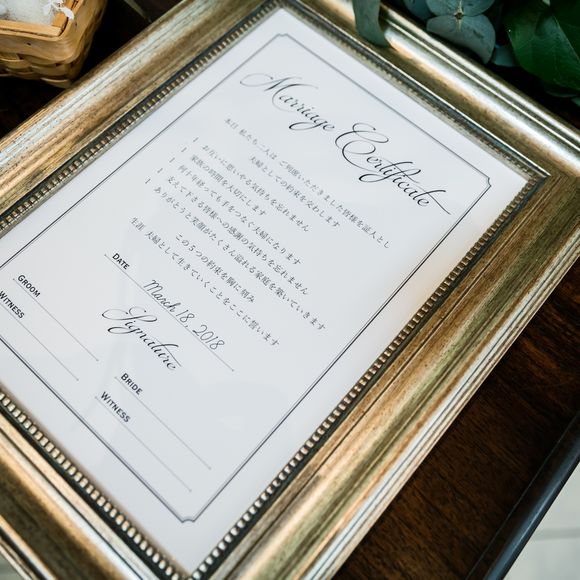 Marriage Certificate
本日 私たち二人は ご列席いただきました皆様を証人とし
夫婦としての約束を交わします
| お互いに思いやる気持ちを忘れません
| 家族の時間を大切にします
| 何十年経っても手をつなぐ夫婦になります
| 支えて下さる皆様への感謝の気持ちを忘れません
| ありがとうと笑顔がたくさん溢れる家庭を築いていきます
この5つの約束を胸に刻み
生涯 夫婦として生きていくことをここに誓います
DATE March 18, 2018
Signature
GROOM
WITNESS
BRIDE
WITNESS